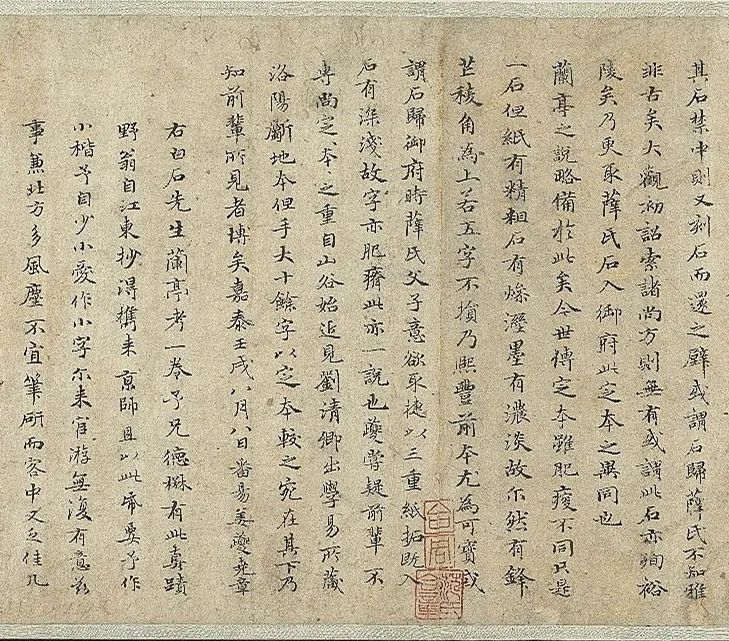 其石禁中則又刻石而還之壁或謂石歸薛氏不知雅
非古矣大觀初詔索諸尚方則無有或謂此石亦殉裕
陵矣乃更取薛氏石入御府此定本之異同也
蘭亭之說略備於此矣今世傳定本雖肥瘦不同只是
一石但紙有精粗石有燥溼墨有濃淡故尔然有鋒
芒稜角為上若五字不損乃熙豐前本尤為可寶或
謂石歸御府時薛氏父子意欲取捷以三重紙拓既入
石有深淺故字亦肥瘠此亦一說也夔嘗疑前輩不
專尚定本本之重自山谷始近見劉清卿出學易所藏
洛陽斷地本但手大十餘字以定本較之宛在其下乃
知前輩所見者博矣嘉泰壬戌八月八日番昜姜夔堯章
右白石先生蘭亭考一卷予兄德楙有此真蹟
野翁自江東抄得攜来京師且以此帋要予作
小楷予自少小愛作小字尔来宦游無復有意於
事兼北方多風塵不宜筆研而客中又乏佳几